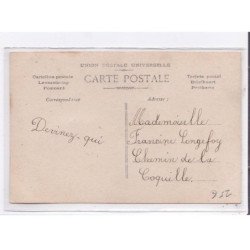 UNION POSTALE UNIVERSELLE
CARTE POSTALE
Cartolina postale
Levelezö-lap
Postcard
Tarjeta postal
Briefkaart
Postkarte
Correspondance
Adresse :
Devinez-qui
Mademoiselle
Francine Longefoy
Chemin de la
Coquille.